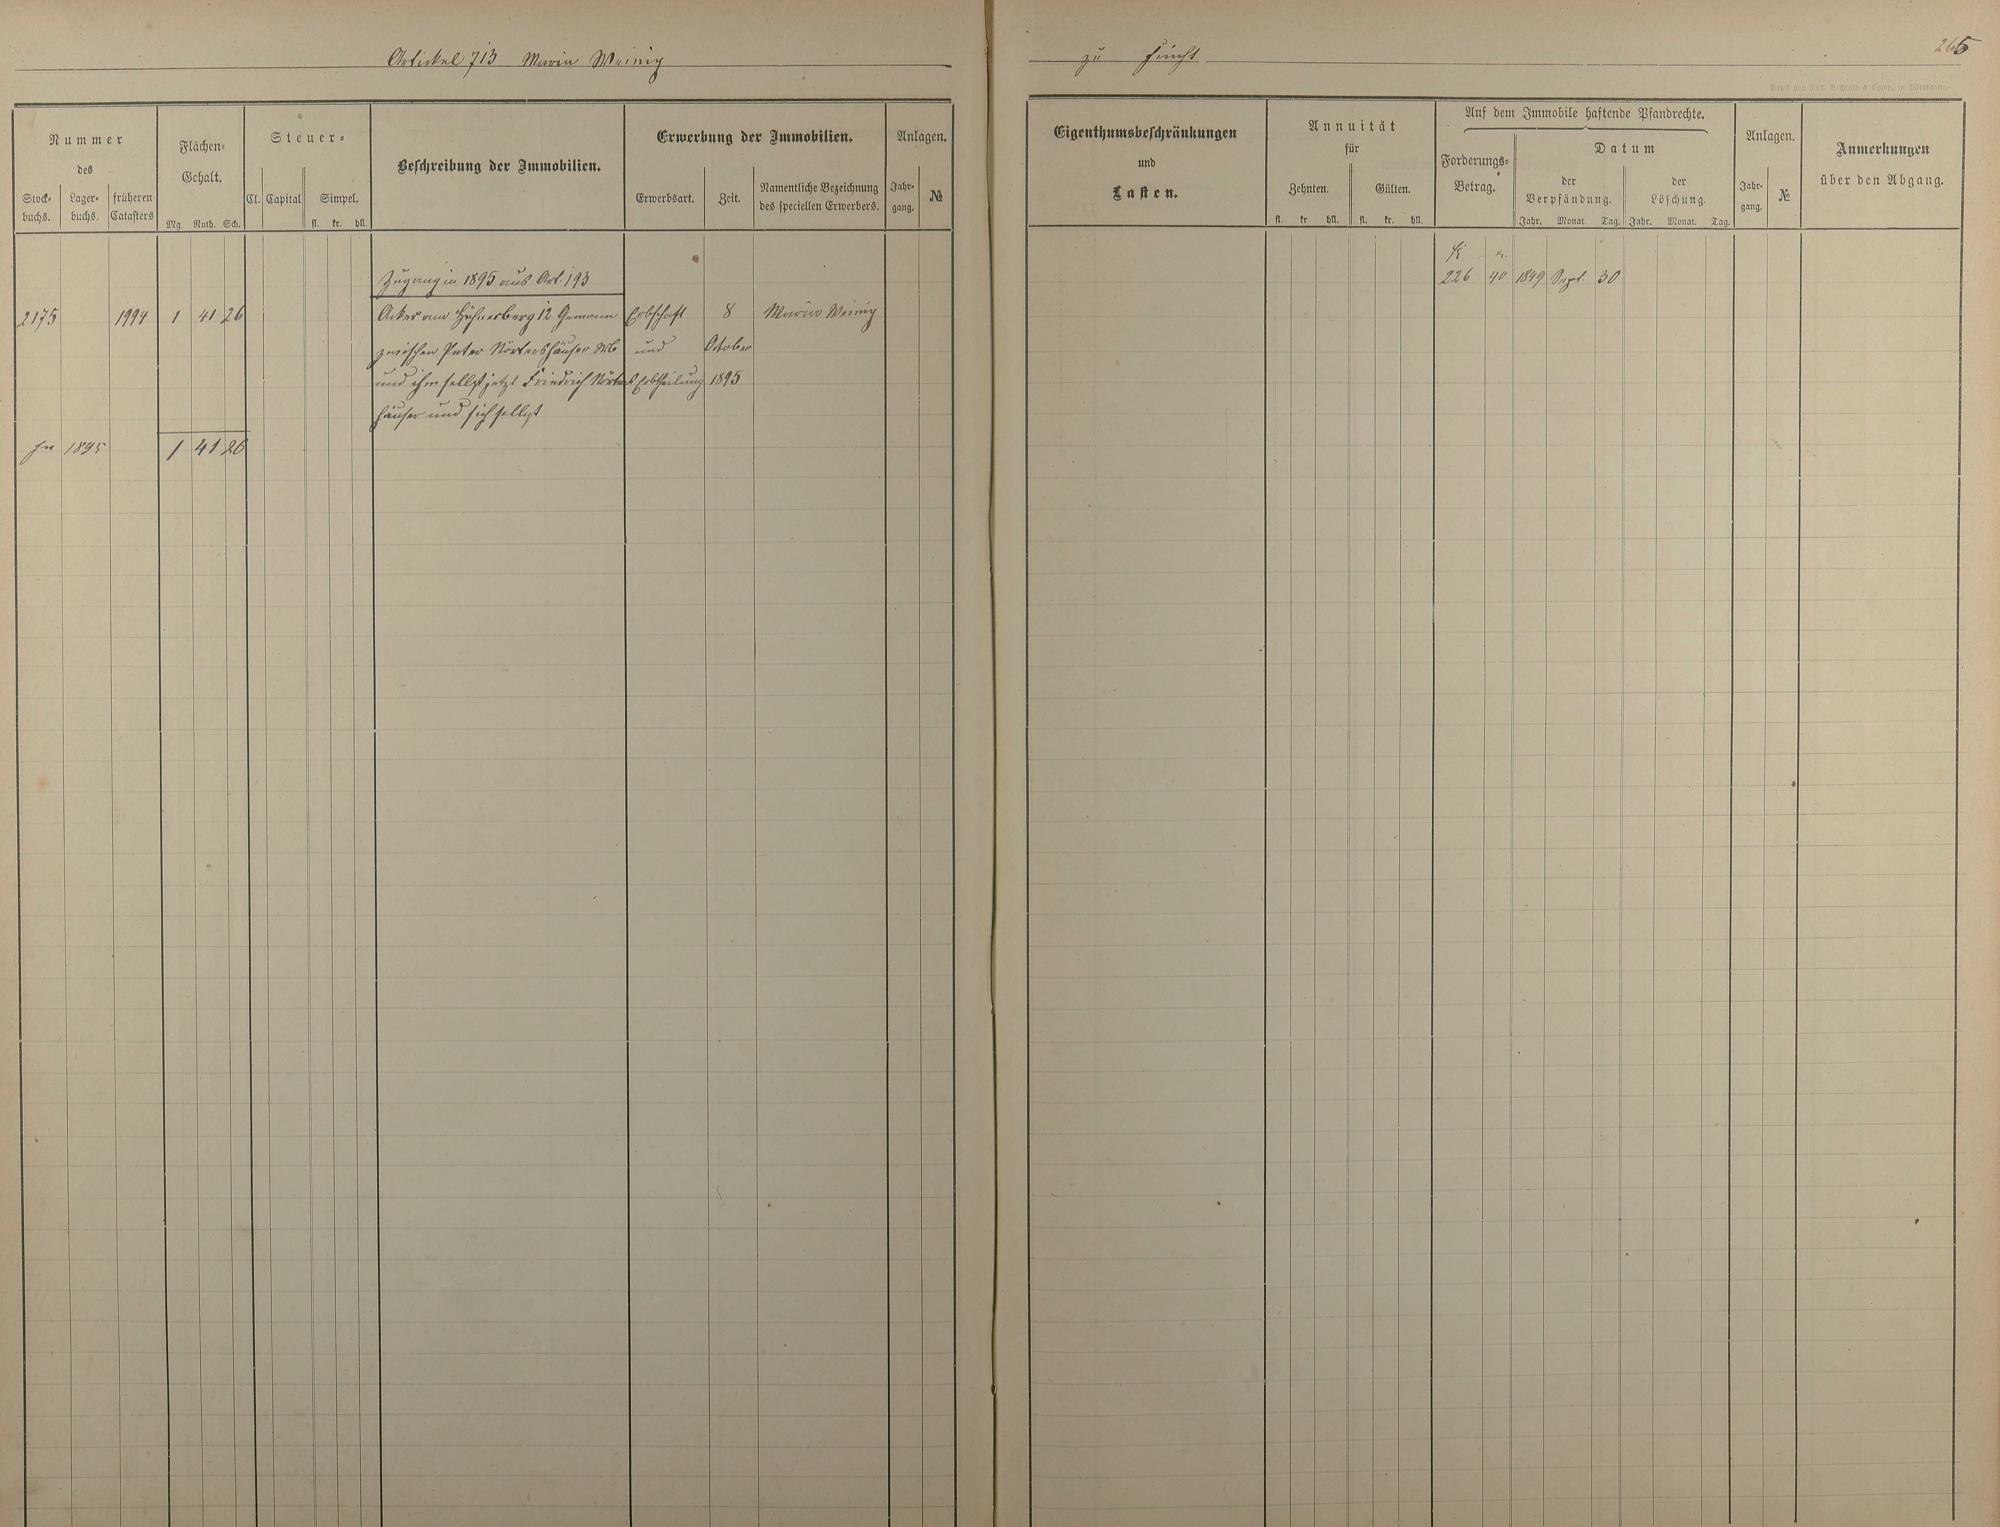 Artickel 713 Maria Weinig
zu Frücht
265
Druck von Rud. Bechtold & Comp. in Wiesbaden.
Nummer
des
Stock-
buchs.
Lager-
buchs.
früheren
Catasters
Flächen-
Gehalt.
Mg. Ruth. Sch.
Steuer-
Cl. Capital Simpel.
fl. kr. hll.
Beschreibung der Immobilien.
Erwerbung der Immobilien.
Erwerbsart. Zeit.
Namentliche Bezeichnung
des speciellen Erwerbers.
Anlagen.
Jahr-
gang.
№
Eigenthumsbeschränkungen
und
Lasten.
Annuität
für
Zehnten. Gülten.
fl. kr. hll. fl. kr. hll.
Auf dem Immobile haftende Pfandrechte.
Forderungs-
Betrag.
Datum
der
Verpfändung.
Jahr. Monat. Tag.
der
Löschung.
Jahr. Monat. Tag.
Anlagen.
Jahr-
gang.
№
Anmerkungen
über den Abgang.
Zugang in 1895 aus Art. 193
2175 1994 1 41 26 Acker am Hühnerberg 12 Gewann Erbschaft 8 Maria Weinig
zwischen Peter Nörtershäuser und October
und ihm selbst jetzt Friedrich Nörters Erbtheilung 1895
häuser und sich selbst
pro 1895 1 41 26
fl kr.
226 40 1849 Sept. 30